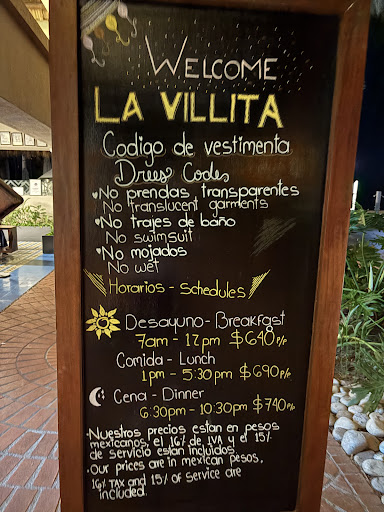 WELCOME
LA VILLITA
Codigo de vestimenta
Drees Codes
No prendas transparentes
No translucent garments
No trajes de baño
No swimsuit
No mojados
No wet
Horarios - Schedules
Desayuno - Breakfast
7am - 12pm $640 P/P
Comida - Lunch
1pm - 5:30pm $690 P/P
Cena - Dinner
6:30pm - 10:30pm $740 P/P
• Nuestros precios estan en pesos
mexicanos, el 16% de IVA y el 15%
de servicio están incluidos.
• Our prices are in mexican pesos,
16% TAX and 15% of service are
included.